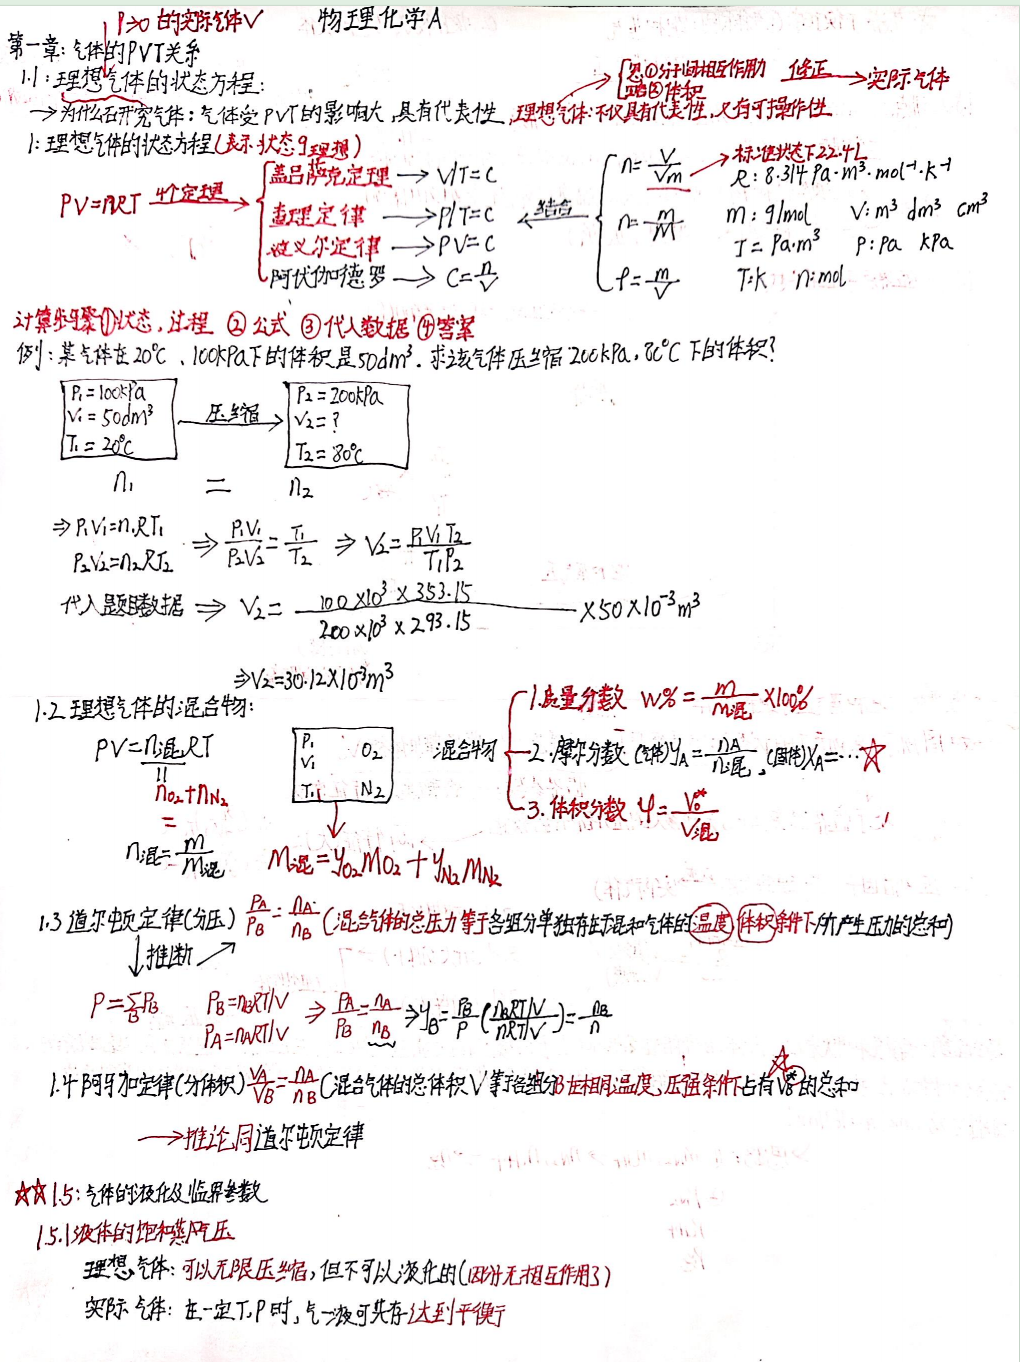 P→0 的实际气体√
物理化学A
第一章:气体的PVT关系
1.1:理想气体的状态方程:
忽略①分子间相互作用力 ②体积 修正→实际气体
→为什么研究气体:气体受PVT的影响大,具有代表性,理想气体:不仅具有代表性,又有可操作性
1:理想气体的状态方程(表示状态的理想)
PV=nRT 4个定理→
盖吕萨克定理→V/T=C
查理定律→P/T=C
波义尔定律→PV=C
阿伏伽德罗→C=n/V
结合
n=V/Vm→标准状态下22.4L
n=m/M
ρ=m/V
R:8.314 Pa·m³·mol⁻¹·K⁻¹
m:g/mol V:m³ dm³ cm³
J=Pa·m³ P:Pa kPa
T:K n:mol
计算步骤①状态,过程 ②公式 ③代入数据 ④答案
例:某气体在20℃、100kPa下的体积是50dm³.求该气体压缩 200kPa,80℃下的体积?
P₁=100kPa
V₁=50dm³
T₁=20℃
压缩
P₂=200kPa
V₂=?
T₂=80℃
n₁ = n₂
⇒P₁V₁=n₁RT₁
P₂V₂=n₂RT₂
⇒ P₁V₁/P₂V₂=T₁/T₂ ⇒ V₂=P₁V₁T₂/T₁P₂
代入题目数据 ⇒ V₂= 100×10³×353.15/200×10³×293.15 ×50×10⁻³m³
⇒V₂=30.12×10⁻³m³
1.2理想气体的混合物:
PV=n混RT
nO₂+nN₂
=
n混=m/M混
P₁ O₂
V₁
T₁ N₂
M混=yO₂MO₂+yN₂MN₂
混合物
1.质量分数 w%=m/m混×100%
2.摩尔分数(气体)yA=nA/n混,(固体)XA=…☆
3.体积分数 φ=V*/V混
1.3道尔顿定律(分压)PA/PB=nA/nB(混合气体的总压力等于各组分单独存在于混和气体的温度体积条件下所产生压力的总和)
推断
P=ΣPB
B
PB=nBRT/V
PA=nART/V
⇒PA/PB=nA/nB⇒yB=PB/P(nBRT/V/nRT/V)=nB/n
1.4阿马加定律(分体积)VA/VB=nA/nB(混合气体的总体积V等于各组分B在相同温度,压强条件下占有VB*的总和
→推论同道尔顿定律
☆☆1.5:气体的液化及临界参数
1.5.1液体的饱和蒸汽压
理想气体:可以无限压缩,但不可以液化的(因为无相互作用了)
实际气体:在一定T,P时,气-液可共存达到平衡